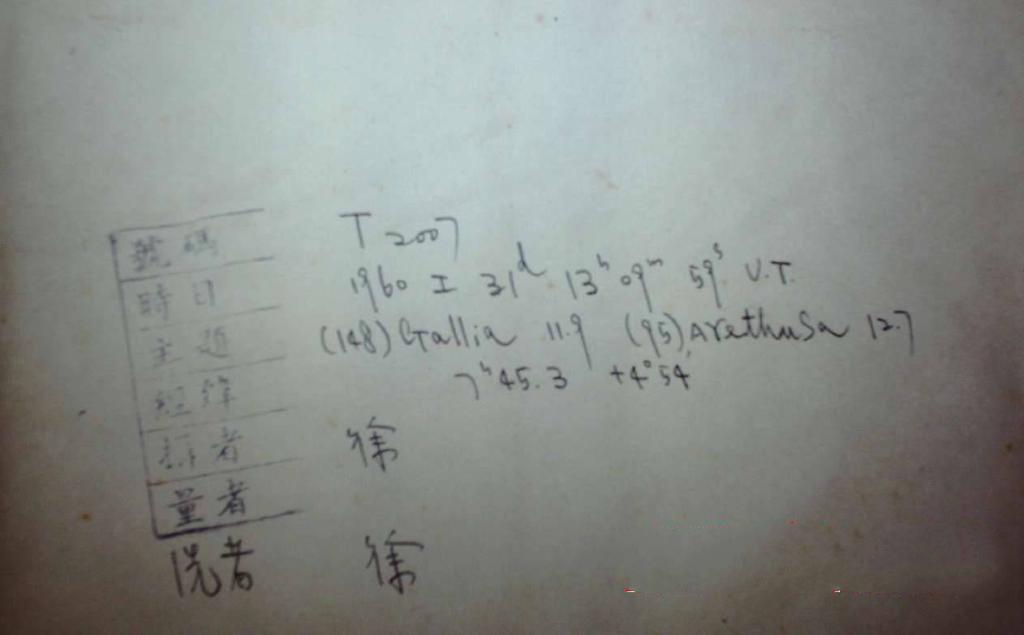 號碼 T 2007
時日 1960 I 31ᵈ 13ʰ 09ᵐ 59ˢ U.T.
主題 (148) Gallia 11.9 (95) Arethusa 12.7
經緯 7ʰ45.3 +4°54'
拍者 徐
量者
洗者 徐